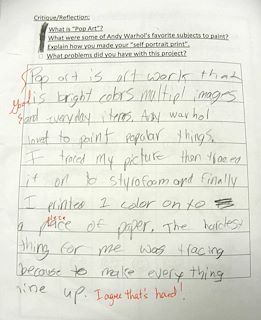 Critique/Reflection:
What is "Pop Art"?
What were some of Andy Warhol's favorite subjects to paint?
Explain how you made your "self portrait print".
What problems did you have with this project?
Pop art is art work that
is bright colors multipl images
and everyday items. Andy warhol
loved to paint popular things.
I traced my picture than traced
it on to styrofoam and finally
I printed 2 color on to
a piece of paper. The hardest
thing for me was tracing
because to make every thing
line up. I agree that's hard!